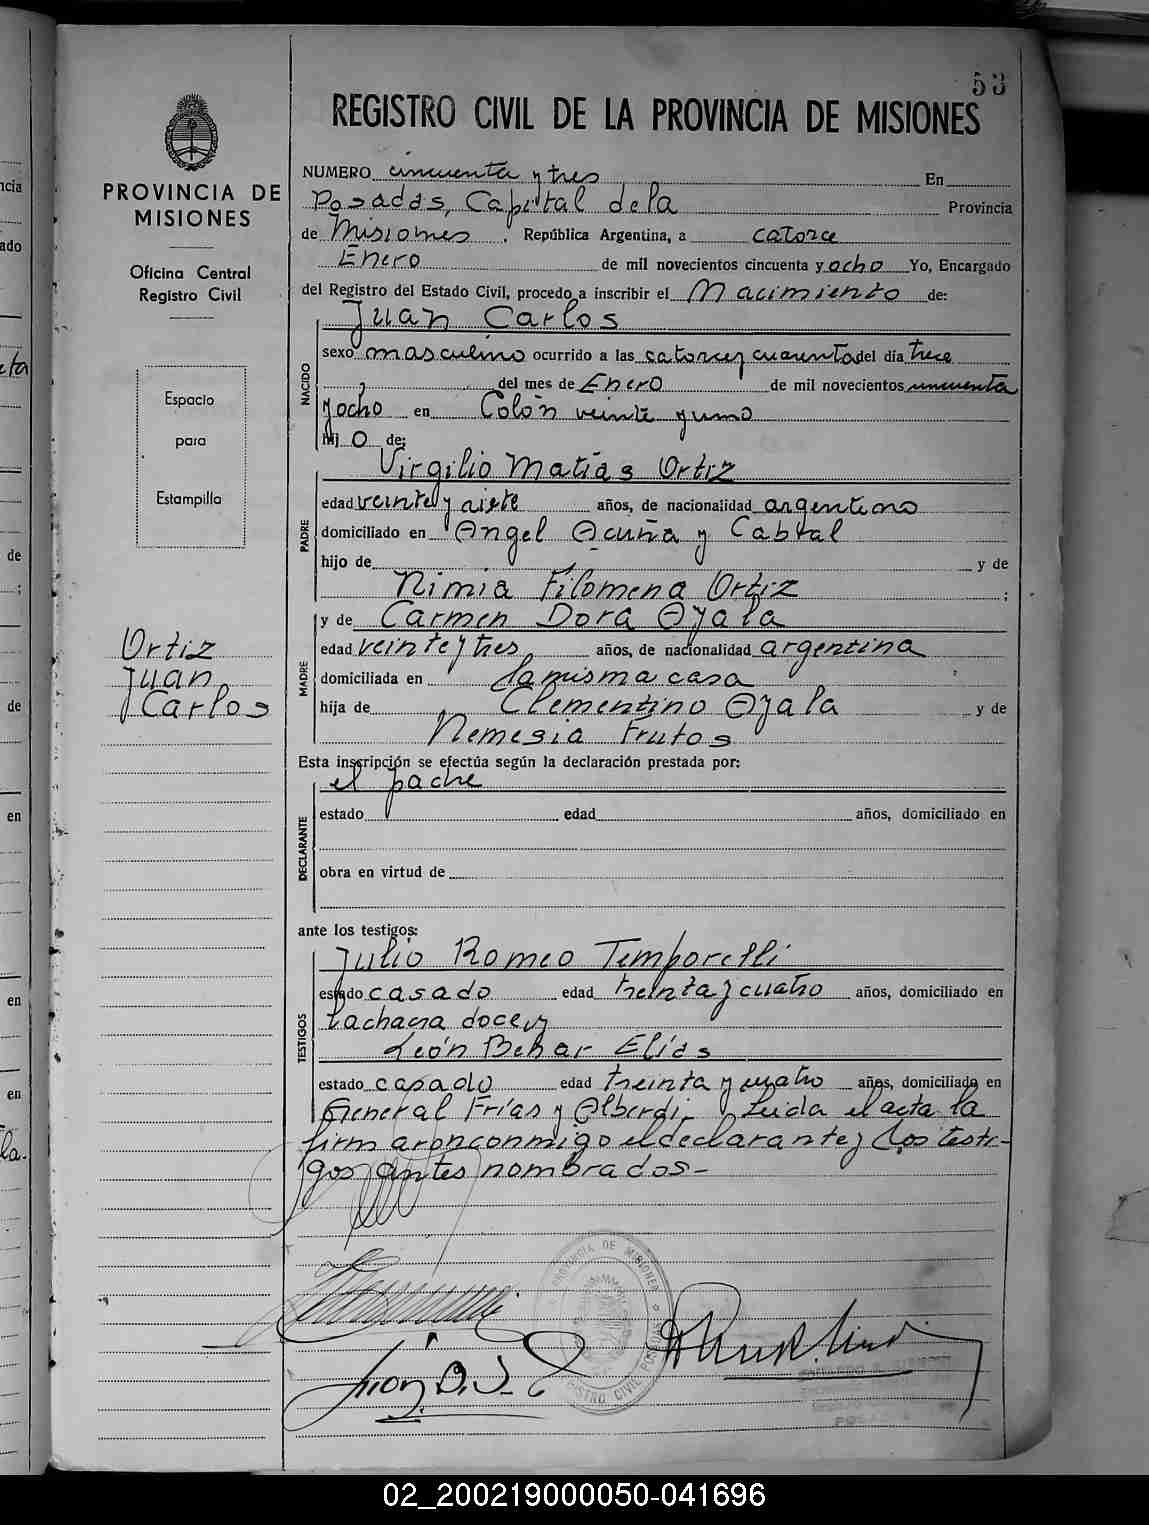 53
REGISTRO CIVIL DE LA PROVINCIA DE MISIONES
PROVINCIA DE
MISIONES
Oficina Central
Registro Civil
Espacio
para
Estampilla
Ortiz
Juan
Carlos
NUMERO cincuenta y tres En
Posadas, Capital de la Provincia
de Misiones. República Argentina, a catorce
Enero de mil novecientos cincuenta y ocho Yo, Encargado
del Registro del Estado Civil, procedo a inscribir el Nacimiento de:
NACIDO
Juan Carlos
sexo masculino ocurrido a las catorce y cuarenta del día trece
del mes de Enero de mil novecientos cincuenta
y ocho en Colón veinte y uno
hijo de:
PADRE
Virgilio Matías Ortiz
edad veinte y siete años, de nacionalidad argentino
domiciliado en Angel Acuña y Cabral
hijo de y de
Nimia Filomena Ortiz ;
MADRE
y de Carmen Dora Ayala
edad veinte y tres años, de nacionalidad argentina
domiciliada en la misma casa
hija de Clementino Ayala y de
Nemesia Frutos
Esta inscripción se efectúa según la declaración prestada por:
DECLARANTE
el padre
estado edad años, domiciliado en
obra en virtud de
ante los testigos:
TESTIGOS
Julio Romeo Temporelli
estado casado edad treinta y cuatro años, domiciliado en
La chacra doce y
León Behar Elías
estado casado edad treinta y cuatro años, domiciliado en
General Frías y Alberdi. Leida el acta la
firmaron conmigo el declarante y los testi-
gos antes nombrados-
PROVINCIA DE MISIONES
REGISTRO CIVIL POSADAS
02_200219000050-041696